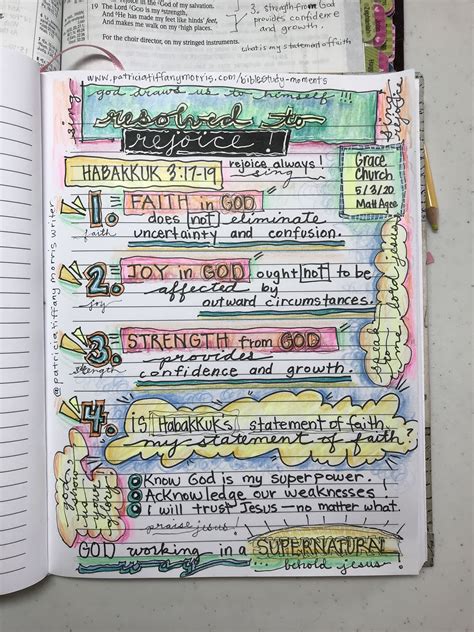 19 The Lord GOD is my strength,
And He has made my feet like hinds' feet,
And makes me walk on my high places.
For the choir director, on my stringed instruments.
3. strength from God
provides confidence
and growth.
what is my statement of faith
www.patriciatiffanymorris.com/biblestudy-moments
god draws us to himself!!!
resolved to
rejoice!
HABAKKUK 3:17-19
rejoice, always!
sing
Grace
Church
5/3/20
Matt Agee
1. FAITH in GOD
does not eliminate
faith
uncertainty and confusion.
2. JOY in GOD ought not to be
affected by
joy
outward circumstances.
3. STRENGTH from GOD
provides
strength
confidence and growth.
speak
to me, lord jesus!
@patricia tiffany morris writer
4. is Habakkuk's statement of faith
my statement of faith?
god,
show
your
glory
Know God is my superpower!
Acknowledge our weaknesses!
I will trust Jesus—no matter what.
praise jesus!
GOD working in a SUPERNATURAL
behold jesus!